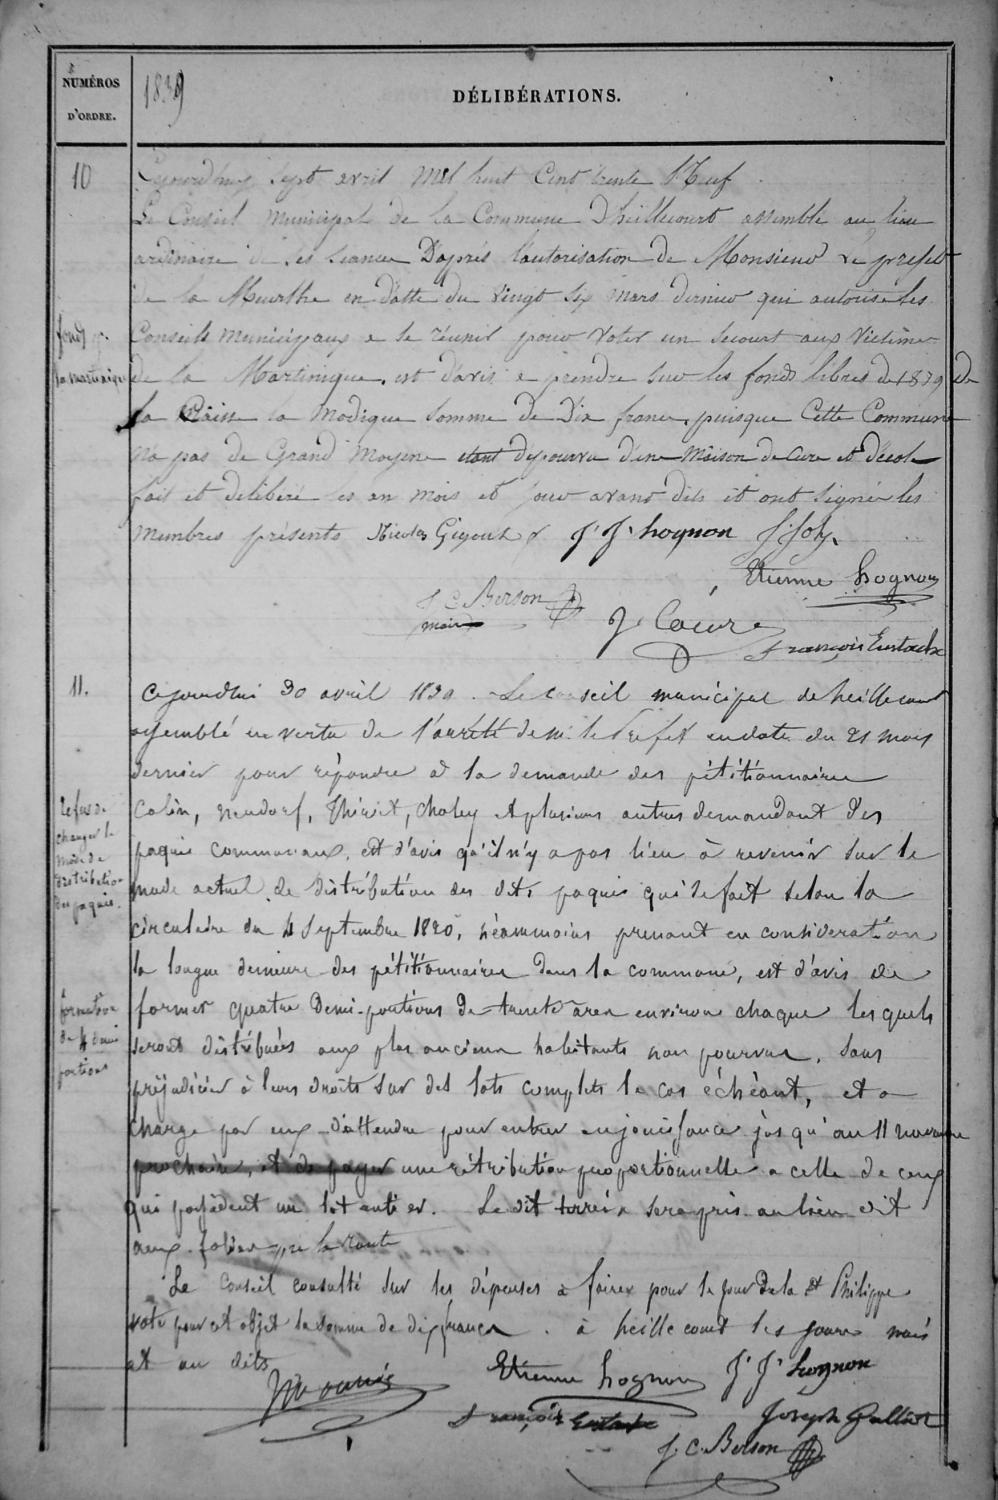 NUMÉROS
D'ORDRE.
1839
DÉLIBÉRATIONS.
10
Cejourdhuy sept avril mil huit Cent trente Neuf
Le Conseil municipal de la Commune D'heillecourt assemble au lieu
ordinaire de ses seances D'aprés l'autorisation de Monsieur Le prefet
de la Meurthe en datte du vingt six mars dernier qui autorise les
fonds pr
la martinique
Conseils municipaux a se réunir pour voter un secours aux Victimes
de la Martinique, est d'avis a prendre sur les fonds libres de 1839 de
la Caisse la modique somme de Dix francs, puisque Cette Commune
n'a pas de Grand Moyens etant depourvu d'une Maison de Cure et d'école
fait et deliberé les an mois et jour avant dits et ont signés les
membres présents Nicolas Gigout J' J' hognon J. Joly
Etienne hognon
J C Berson
maire
J. Coeure
François Eustache
11.
Cejourdhui 30 avril 1839. Le conseil municipal de heillecourt
assemblé en vertu de l'arrêté de m. le Prefet en date du 21 mars
dernier pour répondre à la demande des pétitionnaires
Refus de
changer le
mode de
distribution
des paquis.
Colin, neudorf, Thiriet, Choley et plusieurs autres demandant des
paquis communaux, est d'avis qu'il n'y a pas lieu à revenir sur le
mode actuel de distribution des dits paquis qui se fait selon la
circulaire du 4 Septembre 1820, néanmoins prenant en considération
la longue demeure des pétitionnaires dans la commune, est d'avis de
formation
de 4 demi
portions
former quatre demi-portions de trente ares environ chaque les quels
seront distribuées aux plus anciens habitants non pourvus, sans
préjudicier à leurs droits sur des lots complets le cas échéant, et a
charge par eux d'attendre pour entrer en jouissance jusqu'au 11 novembre
prochain, et de payer une rétribution proportionnelle a celle de ceux
qui possèdent un lot entier. Le dit terrein sera pris au lieu dit
aux la route
Le Conseil consulté sur les dépenses a faire pour le jour de la St Philippe
vote pour cet objet la somme de dix francs. à heillecourt les jours mois
et an dits
Etienne hognon J' J' hognon
François Eustache Joseph Galliot
J. C. Berson